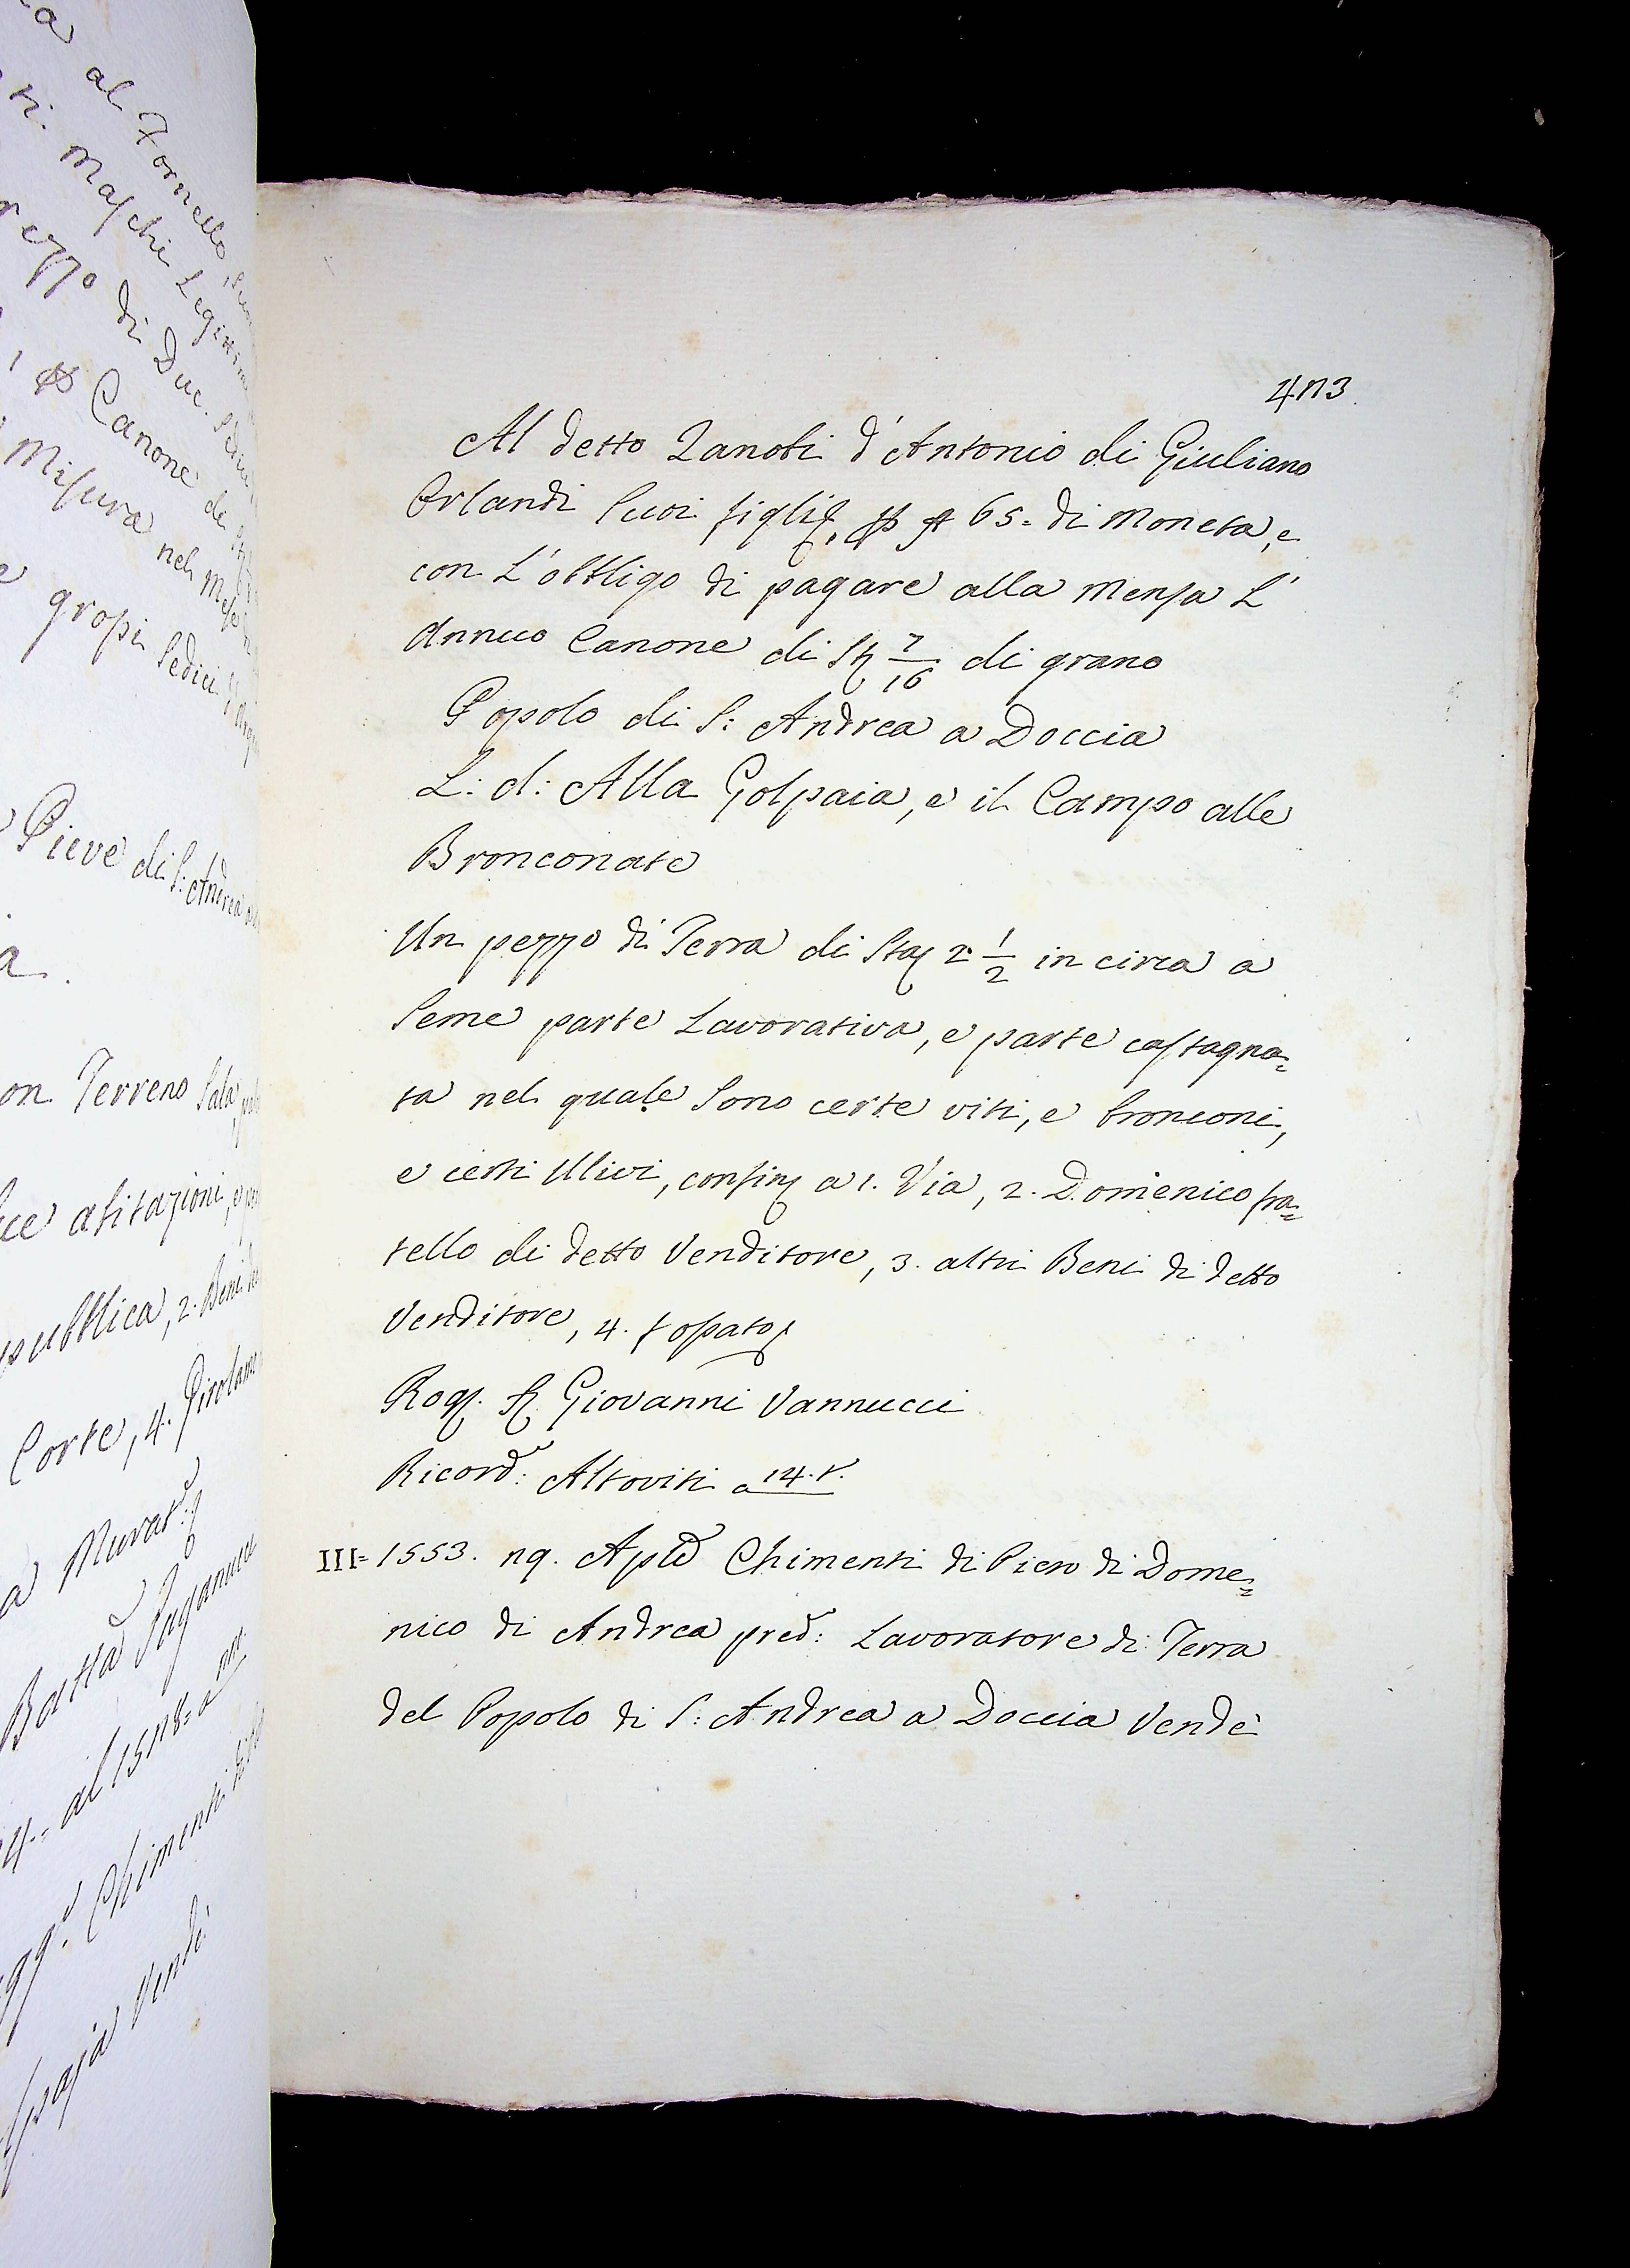 473
Al detto Zanobi d'Antonio di Giuliano
Orlandi Suoi figli, 65= di Moneta, e
con L'obbligo di pagare alla Mensa L'
Annuo Canone di St 7/16 di grano
Popolo di S: Andrea a Doccia
L: d: Alla Golpaia, e il Campo alle
Bronconate
Un pezzo di Terra di Sta 2 1/2 in circa a
Seme parte Lavorativa, e parte castagna=
ta nel quale Sono certe viti, e bronconi,
e certi Ulivi, confin a 1. Via, 2. Domenico fra=
tello di detto Venditore, 3. altri Beni di detto
Venditore, 4. fossato
Rog. Giovanni Vannucci
Ricord: Altoviti a 14.t.
III= 1553. 19. Aple Chimenti di Piero di Dome=
nico di Andrea pred: Lavoratore di Terra
del Popolo di S: Andrea a Doccia Vendè
al Fornello
Maschi Legittimi
di Duc.
Canone di
Misura nel Mese
grossi Sedici
Pieve di S: Andrea
Terreno Sala
abitazioni, e
pubblica, 2. Beni
Corte, 4. Girolamo
Murat
Batta Paganucci
al 1578= a
Chimenti di
Vendè